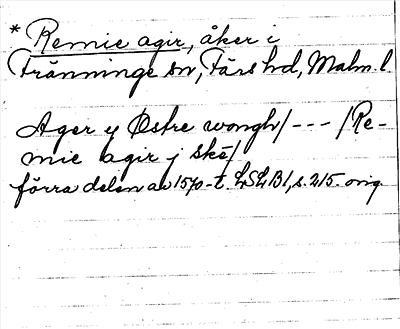 * Remie agir, åker i
Tränninge sn, Färs hd, Malm. l.
Ager y Østre wongh/ --- /Re-
mie agir j skě/
förra delen av 1570-t. LSLB1, s. 215. orig.